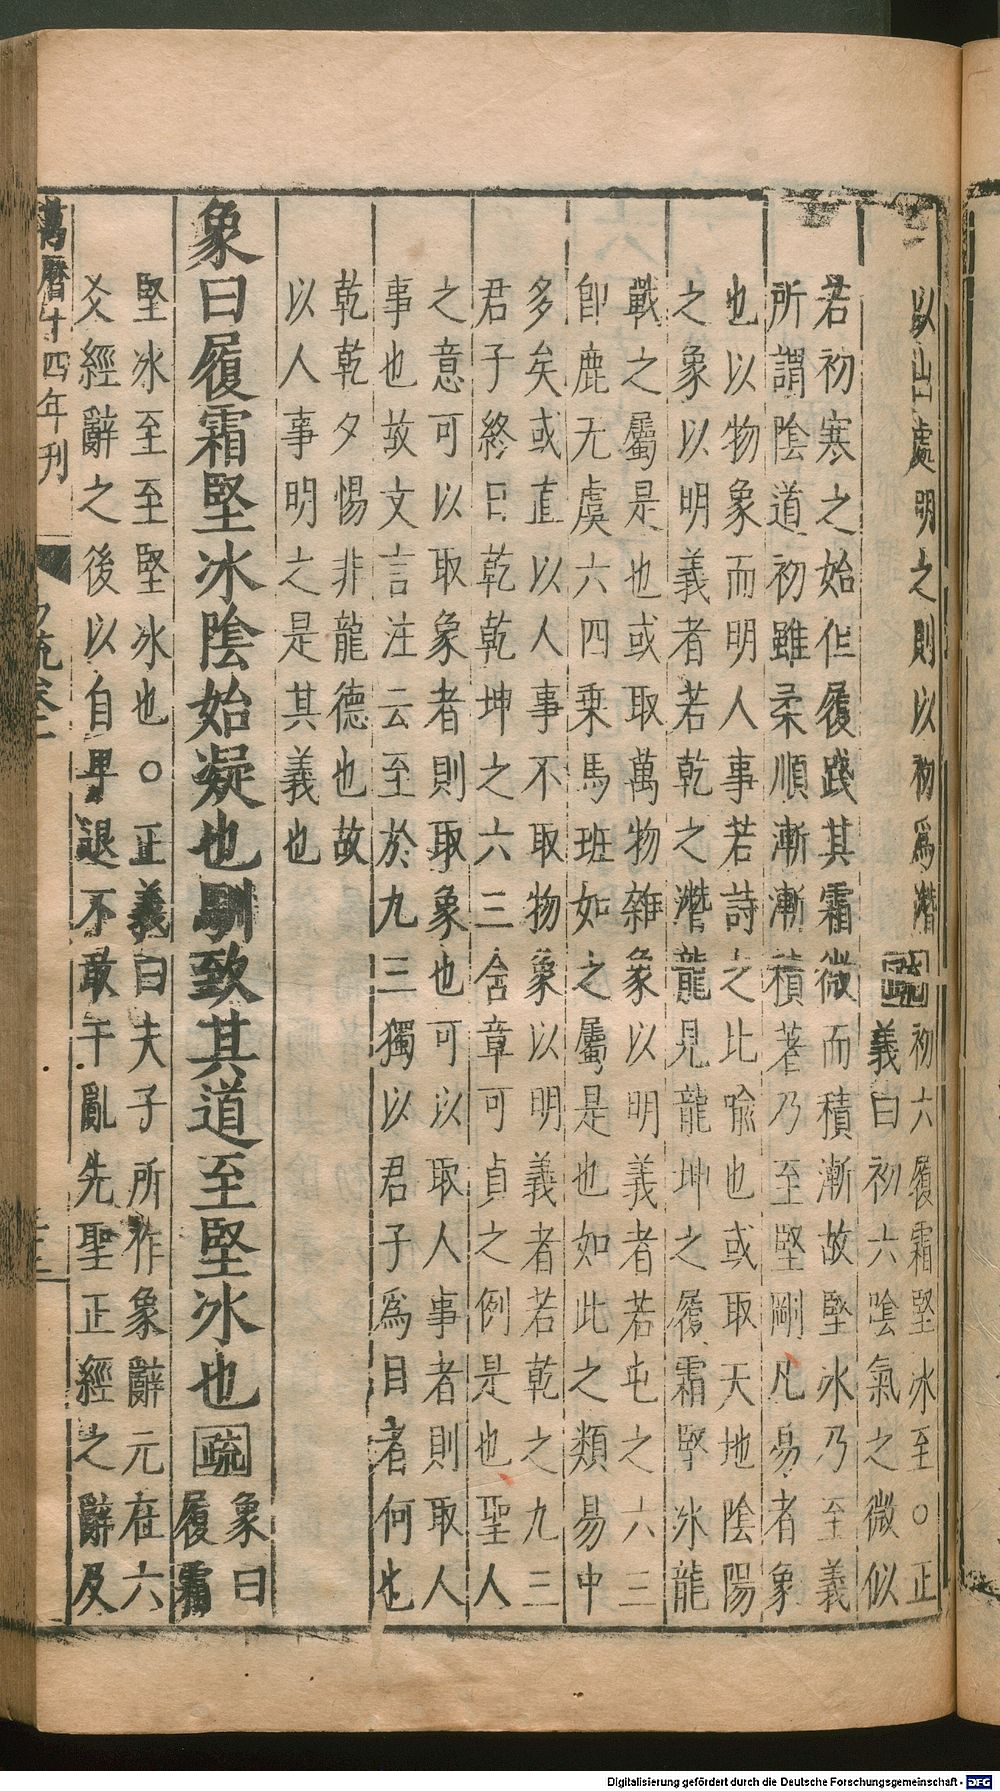 以出處明之則以初爲潛疏初六履霜堅冰至○正
義曰初六陰氣之微似
若初寒之始但履踐其霜微而積漸故堅冰乃至義
所謂陰道初雖柔順漸漸積著乃至堅剛凡易者象
也以物象而明人事若詩之比喻也或取天地陰陽
之象以明義者若乾之潛龍見龍坤之履霜堅冰龍
戰之屬是也或取萬物雜象以明義者若屯之六三
卽鹿无虞六四乗馬班如之屬是也如此之類易中
多矣或直以人事不取物象以明義者若乾之九三
君子終日乾乾坤之六三含章可貞之例是也聖人
之意可以取象者則取象也可以取人事者則取人
事也故文言注云至於九三獨以君子爲目者何也
乾乾夕惕非龍德也故
以人事明之是其義也
象曰履霜堅冰陰始凝也馴致其道至堅冰也疏象曰
履霜
堅冰至至堅冰也○正義曰夫子所作象辭元在六
爻經辭之後以自卑退不敢干亂先聖正經之辭及
萬曆十四年刊
易疏卷二
Digitalisierung gefördert durch die Deutsche Forschungsgemeinschaft - DFG